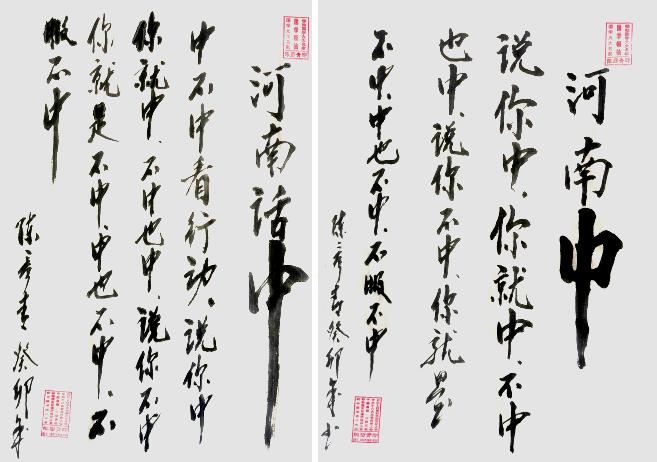 河南话中
中不中看行动、说你中
你就中、不中也中、说你不中
你就是不中、中也不中、不
服不中
陈彦青癸卯年
河南中
说你中、你就中、不中
也中、说你不中、你就是
不中、中也不中、不服不中
陈彦青癸卯年书